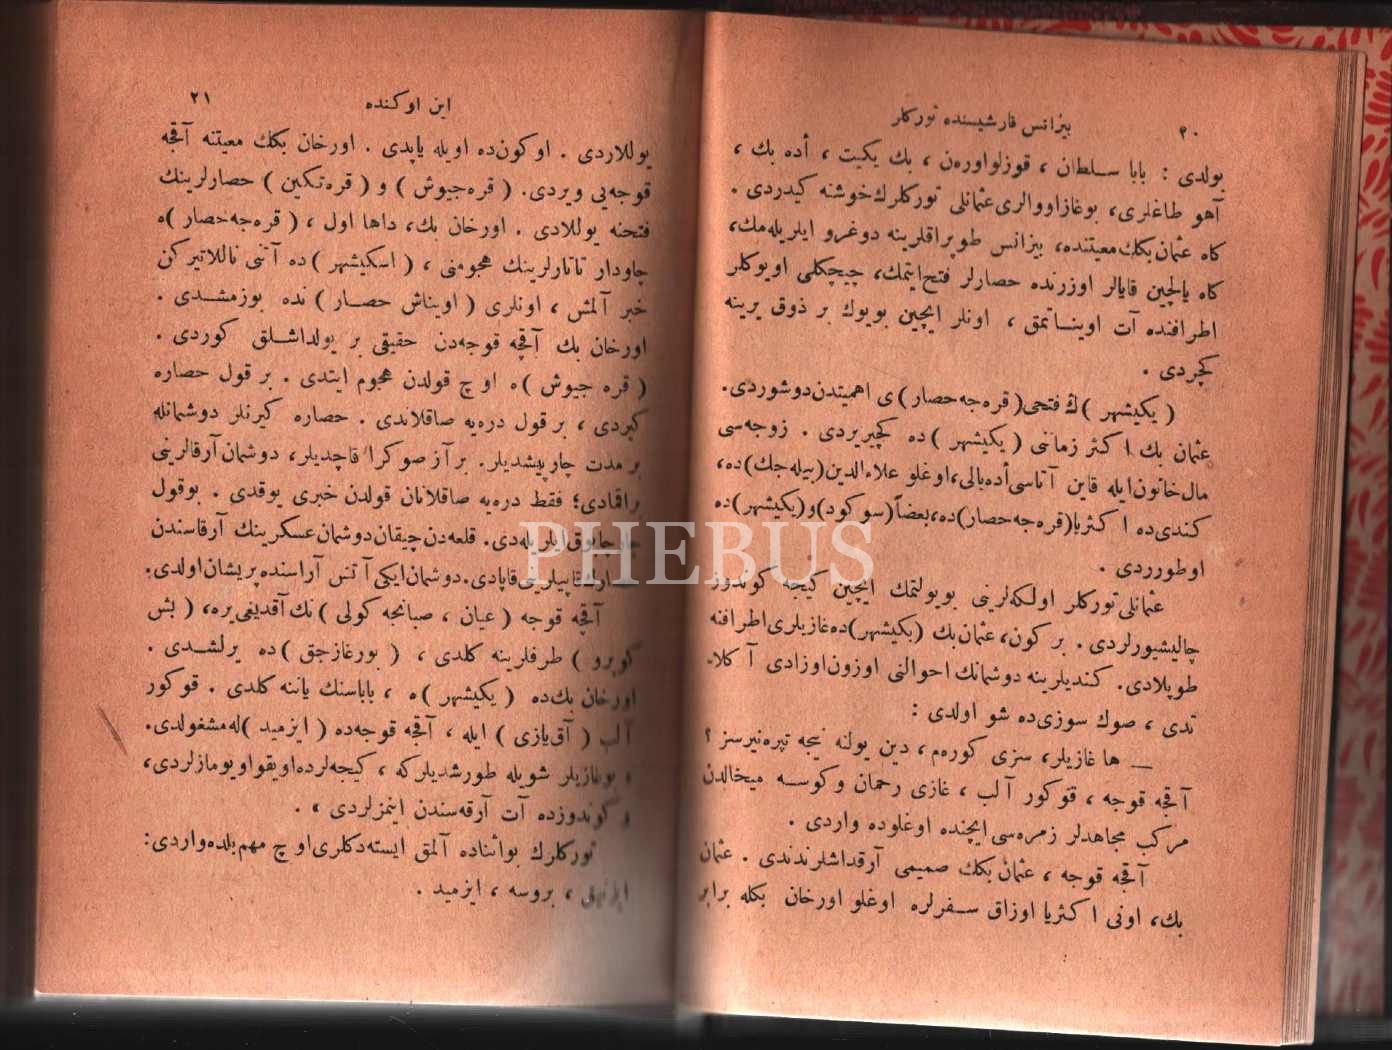 ٢٠
بيزانس قارشيسنده توركلر
بولدى : بابا سلطان ، قوزلواورەن ، بك يكيت ، أده بك ،
آهو طاغلرى، بوغازاووالرى عثمانلى توركلرك خوشنه كيدردى .
كاه عثمان بكك معيتنده، بيزانس طوپراقلرينه دوغرو ايلريله مك،
كاه يالچين قايالر اوزرنده حصارلر فتح ايتمك، چيچكلى اويوكلر
اطرافنده آت اويناتمق ، اونلر ايچين بويوك بر ذوق يرينه
كچردى .
( يكيشهر ) ك فتحى ( قره جه حصار ) ى اهميتدن دوشوردى.
عثمان بك اكثر زماننى ( يكيشهر ) ده كچيريردى . زوجه سى
مال خاتون ايله قاين آتاسى أده بالى، اوغلو علاءالدين (بيله جك) ده،
كندى ده اكثريا (قره جه حصار) ده، بعضاً (سوكود) و (يكيشهر) ده
اوطورردى .
عثمانلى توركلر اولكه لرينى بويولتمك ايچين كيجه كوندوز
چاليشيورلردى . بر كون، عثمان بك (يكيشهر) ده غازيلرى اطرافنه
طوپلادى. كنديلرينه دوشمانك احوالنى اوزون اوزادى آكلا-
تدى ، صوك سوزى ده شو اولدى :
— ها غازيلر، سزى كورەم ، دين يولنه نيجه تپره نيرسز ؟
آقچه قوجه ، قوكور آلب ، غازى رحمان و كوسه ميخالدن
مركب مجاهدلر زمره سى ايچنده اوغلوده واردى .
آقچه قوجه ، عثمان بكك صميمى آرقداشلرندندى . عثمان
بك، اونى اكثريا اوزاق سفرلره اوغلو اورخان بكله برابر
اين اوكنده
٢١
يوللاردى . او كون ده اويله ياپدى . اورخان بكك معيتنه آقچه
قوجه يى ويردى. ( قره جيوش ) و ( قره تكين ) حصارلرينك
فتحنه يوللادى . اورخان بك، داها اول ، ( قره جه حصار ) ه
چاودار تاتارلرينك هجومنى ، ( اسكيشهر ) ده آتنى ناللاتيركن
خبر آلمش ، اونلرى ( اويناش حصار ) نده بوزمشدى .
اورخان بك آقچه قوجه دن حقيقى بر يولداشلق كوردى .
( قره جيوش ) ه اوچ قولدن هجوم ايتدى . بر قول حصاره
كيردى ، بر قول دره يه صاقلاندى . حصاره كيرنلر دوشمانله
بر مدت چارپيشديلر. بر آز صوكرا قاچديلر، دوشمان آرقالرينى
براقمادى؛ فقط دره يه صاقلانان قولدن خبرى يوقدى . بوقول
چابوق ايلريله دى. قلعه دن چيقان دوشمان عسكرينك آرقاسندن
قاپيلرينى قاپادى. دوشمان ايكى آتش آراسنده پريشان اولدى.
آقچه قوجه ( عيان ، صبانجه كولى ) نك آقديغى يره، ( بش
كوپرو ) طرفلرينه كلدى ، ( بورغازجق ) ده يرلشدى .
اورخان بك ده ( يكيشهر ) ه ، باباسنك ياننه كلدى . قوكور
آلب ( آق يازى ) ايله ، آقچه قوجه ده ( ايزميد ) له مشغولدى.
بوغازيلر شويله طورشديلركه ، كيجه لرده اويقو اويومازلردى،
و كوندوزده آت آرقه سندن اينمزلردى .
توركلرك بو اثناده آلمق ايسته دكلرى اوچ مهم بلده واردى:
ازنيق ، بروسه ، ايزميد .
PHEBUS